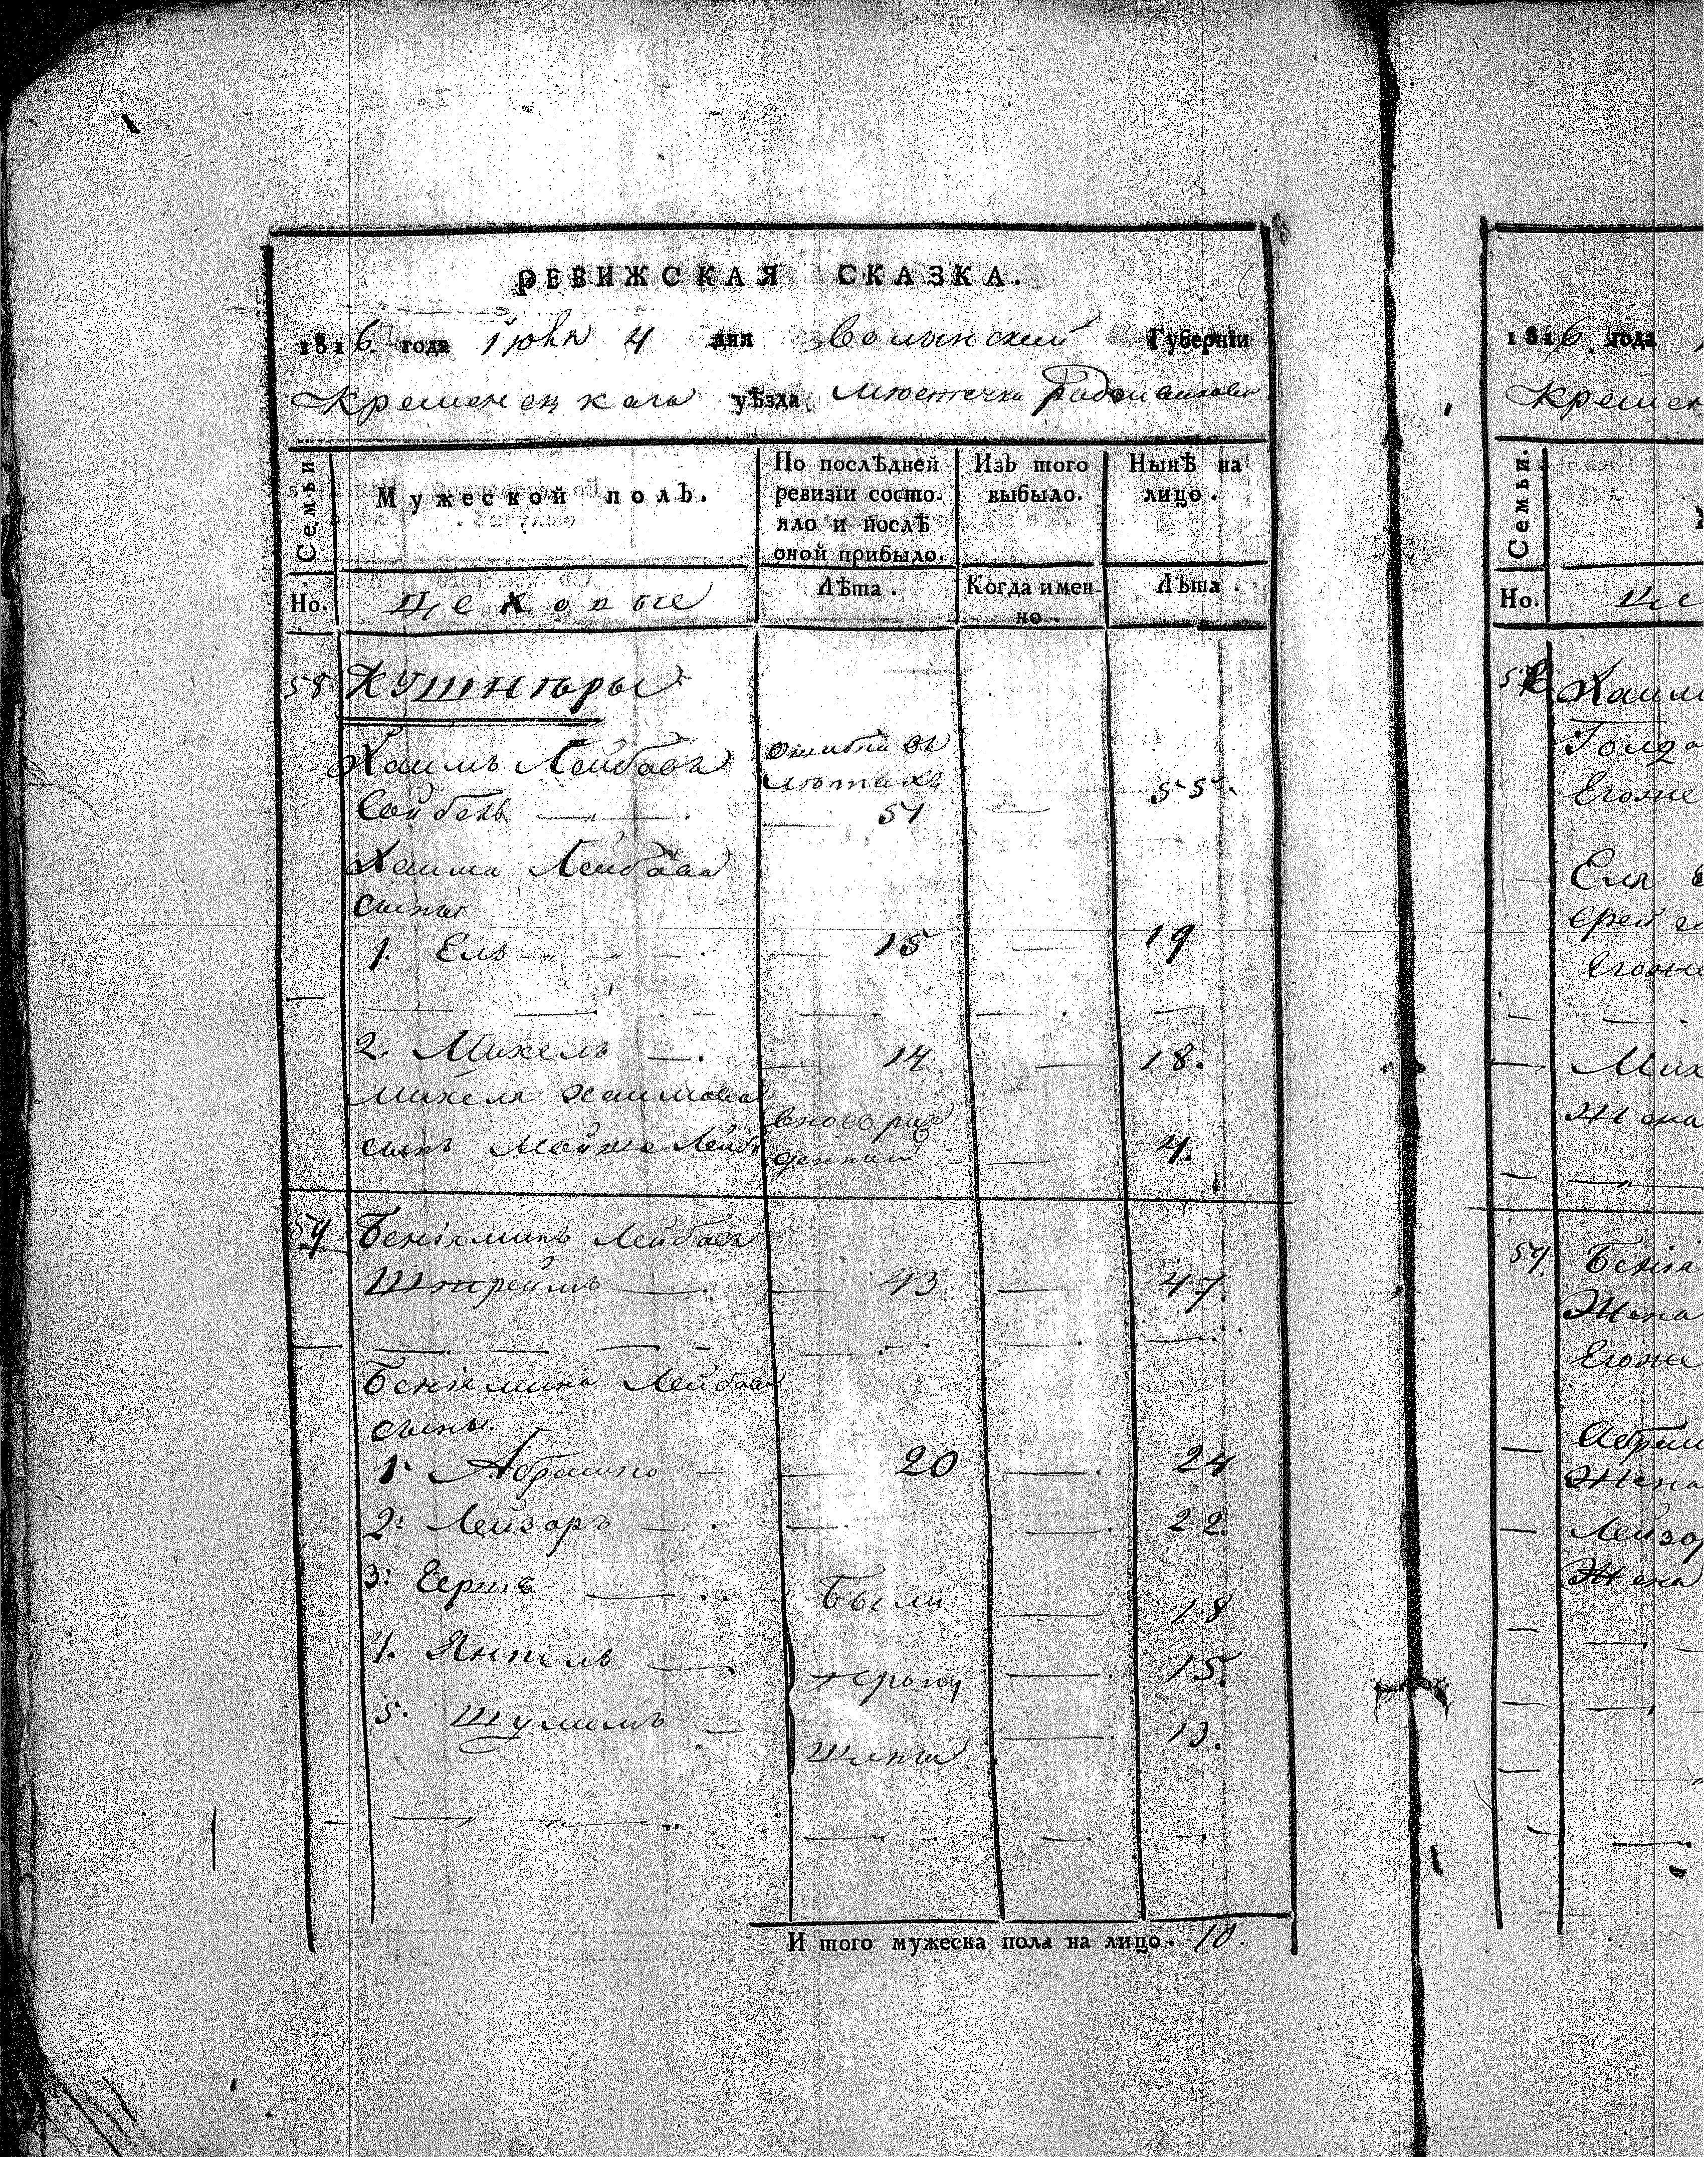 РЕВИЖСКАЯ СКАЗКА.
1816 года Июня 4 дня Волынский Губернїи
Кременецкаго уѣзда местечка Радзивилова
Семьи
Мужеской полъ.
По послѣдней ревизїи состо-
яло и послѣ
оной прибыло.
Изъ того
выбыло.
Нынѣ на
лицо.
Но.
Цеховые
Лѣта.
Когда имен-
но.
Лѣта.
58 Кушнѣры
Хаимъ Лейбовъ Ошибка въ
лютахъ
51 55.
Хаима Лейбова
сыны
1. Ель 15 19
2. Михель 14 18.
Михеля Хаимова
сынъ Мойше Лейбъ вново рож
денный 4.
59 Бениаминъ Лейбовъ
Штреймъ 43 47.
Бениамина Лейбова
сыны.
1. Абрамко 20 24
2. Лейзоръ 22.
3. Гершъ Были 18
4. Янкель 15.
5. Шулимъ 13.
И того мужеска пола на лицо. 10.
1816 года
Кремен
Семьи.
Но. Це
58 Хаим
Голда
Егоже
Еля
Егоже
Мих
Жена
59. Бенiа
Жена
Егоже
Абрам
Жена
Лейзо
Жена